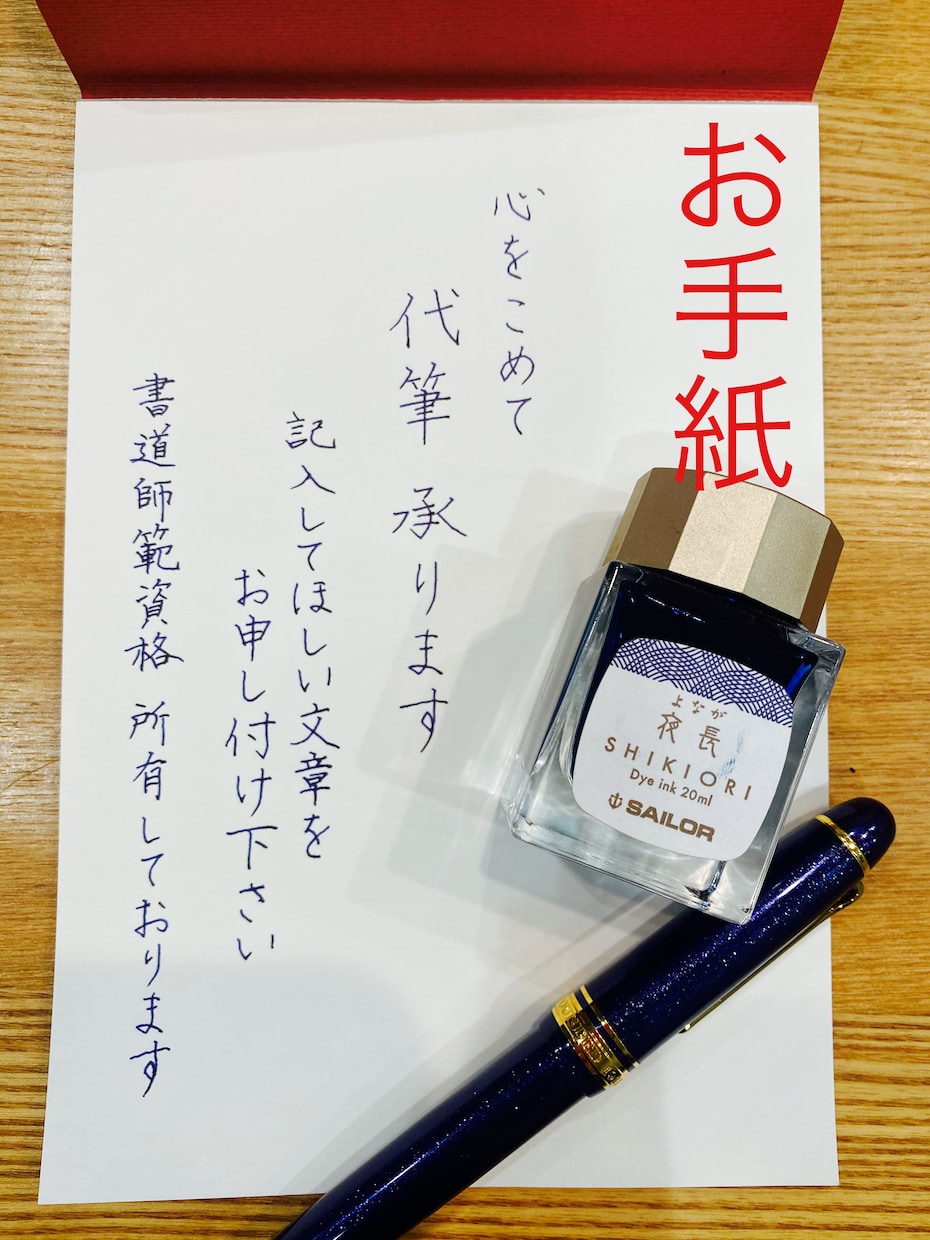 お手紙
心をこめて
代筆 承ります
記入してほしい文章を
お申し付け下さい
書道師範資格 所有しております
よなが
夜長
SHIKIORI
Dye ink 20ml
SAILOR